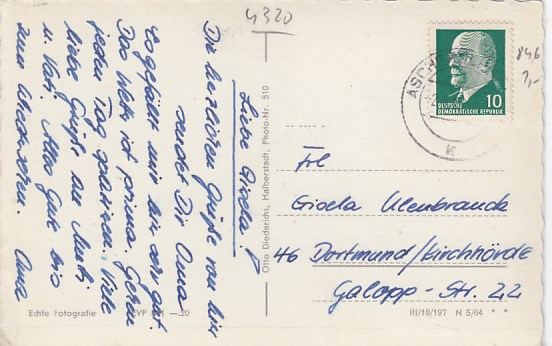 4320
Liebe Gisela!
Die herzlichen Grüße von hier
sendet Dir Oma
Es gefällt mir hier sehr gut.
Das Wetter ist prima. Gehen
jeden Tag spazieren. Viele
liebe Grüße an Mutti
u. Vati. Alles Gute bis
zum Wiedersehen. Oma
Echte Fotografie
EVP DM —.20
Otto Diederichs, Halberstadt, Photo-Nr. 510
ASCHE
K
10
DEUTSCHE
DEMOKRATISCHE REPUBLIK
846
Frl
Gisela Ulenbrande
46 Dortmund/Kirchhörde
Galopp-Str. 22
III/18/197 N 5/64 * *